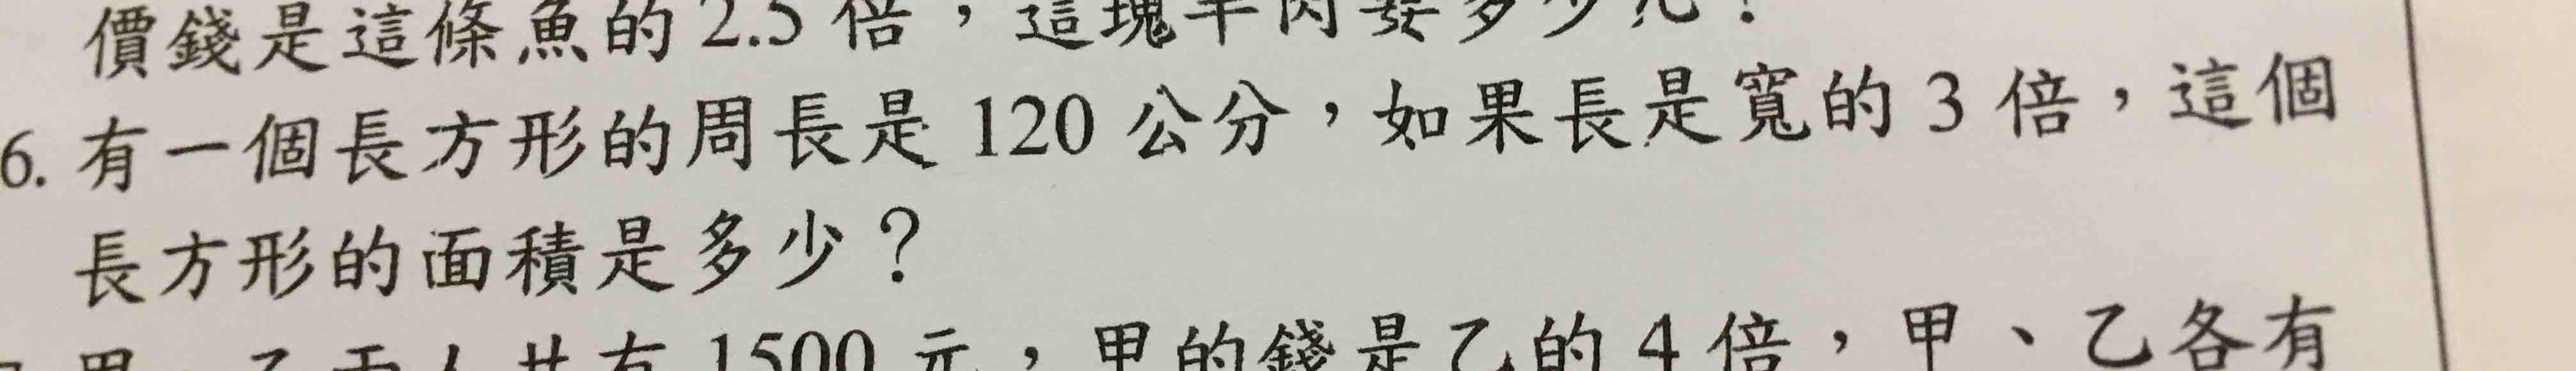 價錢是這條魚的 2.5 倍，這塊羊肉要多少元？
6. 有一個長方形的周長是 120 公分，如果長是寬的 3 倍，這個
長方形的面積是多少？
甲、乙兩人共有 1500 元，甲的錢是乙的 4 倍，甲、乙各有